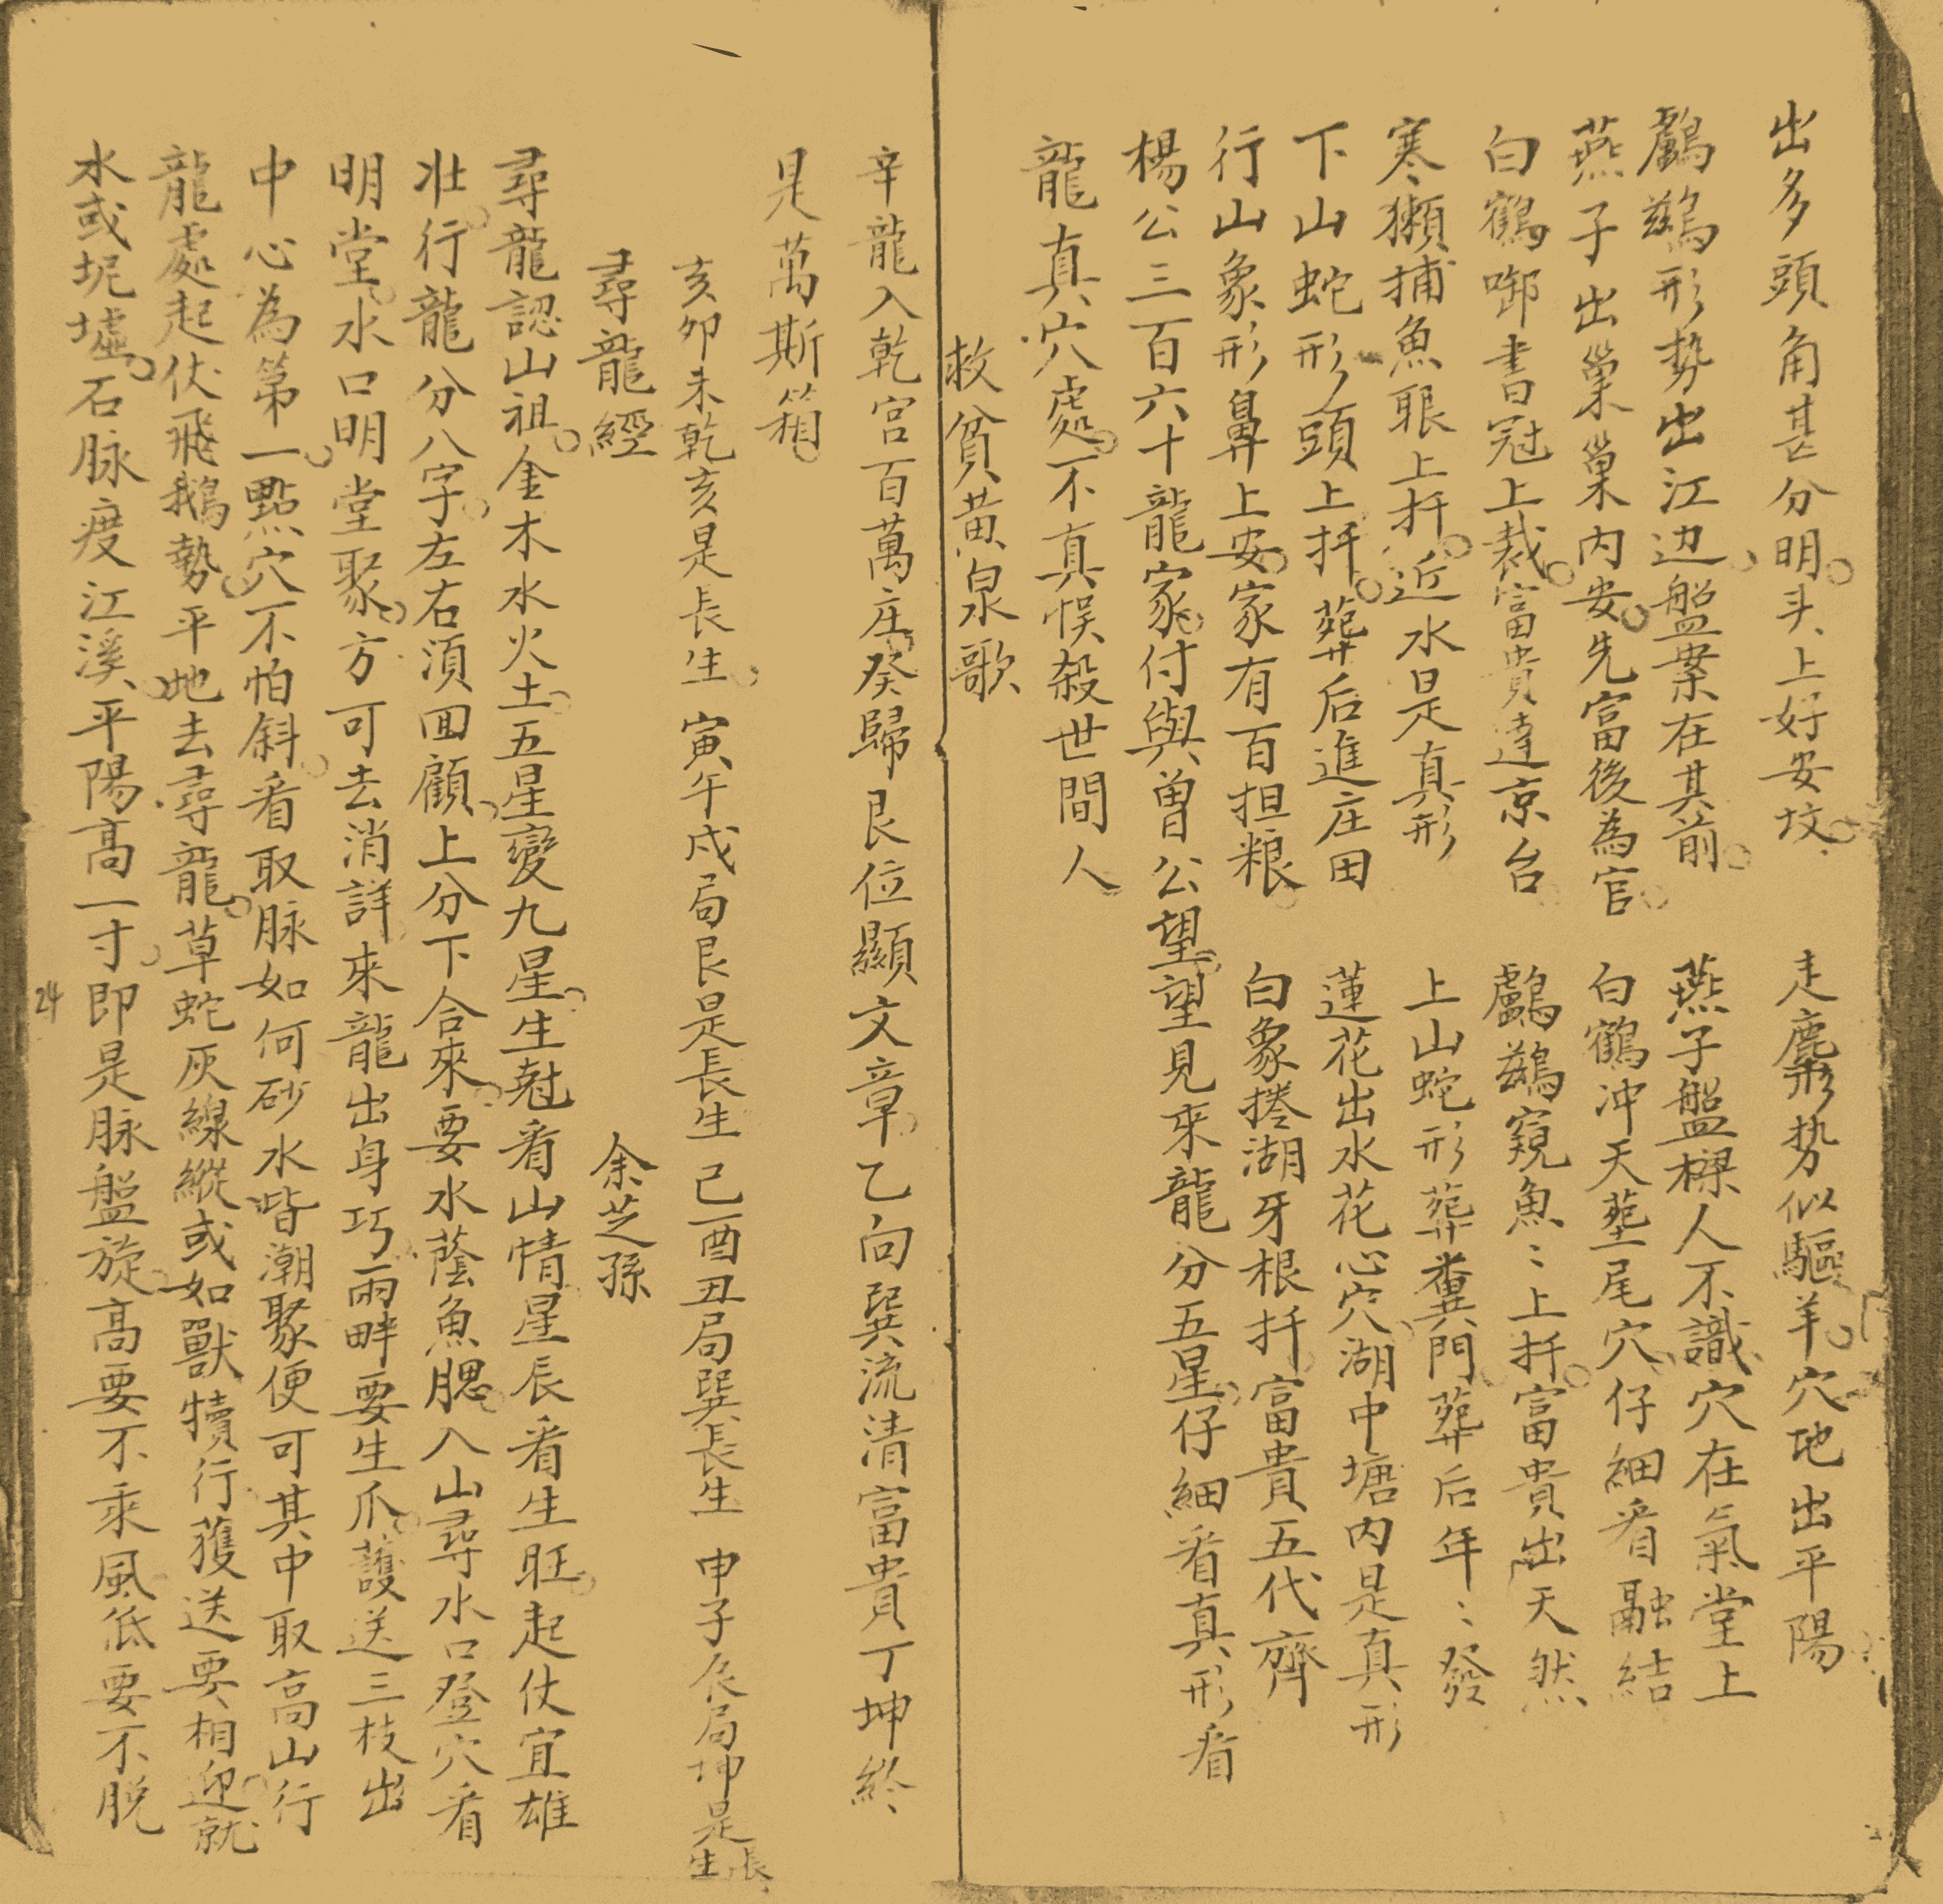 出多頭角甚分明头上好安坟　走麞形势似驅羊穴地出平陽
鸕鷀形势出江边盤案在其前　燕子盤樑人不識穴在氣堂上
燕子出巢巢内安先富後為官　白鶴冲天塟尾穴仔細看融結
白鶴啣書冠上裁富貴達京台　鸕鷀窺魚〻上扦富貴出天然
寒獺捕魚眼上扦近水是真形　上山蛇形葬糞門葬后年〻發
下山蛇形頭上扦葬后進庄田　蓮花出水花心穴湖中塘内是真形
行山象形鼻上安家有百担粮　白象捲湖牙根扦富貴五代齊
楊公三百六十龍家付與曽公望望見來龍分五星仔細看真形看
龍真穴處不真悮殺世間人
救貧黄泉歌
辛龍入乾宫百萬庄癸歸艮位顯文章乙向巽流清富貴丁坤終
是萬斯箱
亥卯未乾亥是長生　寅午戍局艮是長生　己酉丑局巽長生　申子辰局坤是長生
尋龍經　余芝孫
尋龍認山祖金木水火土五星變九星生尅看山情星辰看生旺起伏宜雄
壮行龍分八字左右須囬顧上分下合來要水蔭魚腮入山尋水口登穴看
明堂水口明堂聚方可去消詳來龍出身巧兩畔要生爪護送三枝出
中心為第一點穴不怕斜看取脉如何砂水皆潮聚便可其中取高山行
龍處起伏飛鵝勢平地去尋龍草蛇灰線縱或如獸犢行獲送要相迎就
水或坭墟石脉度江溪平陽高一寸即是脉盤旋高要不乘風低要不脱
24